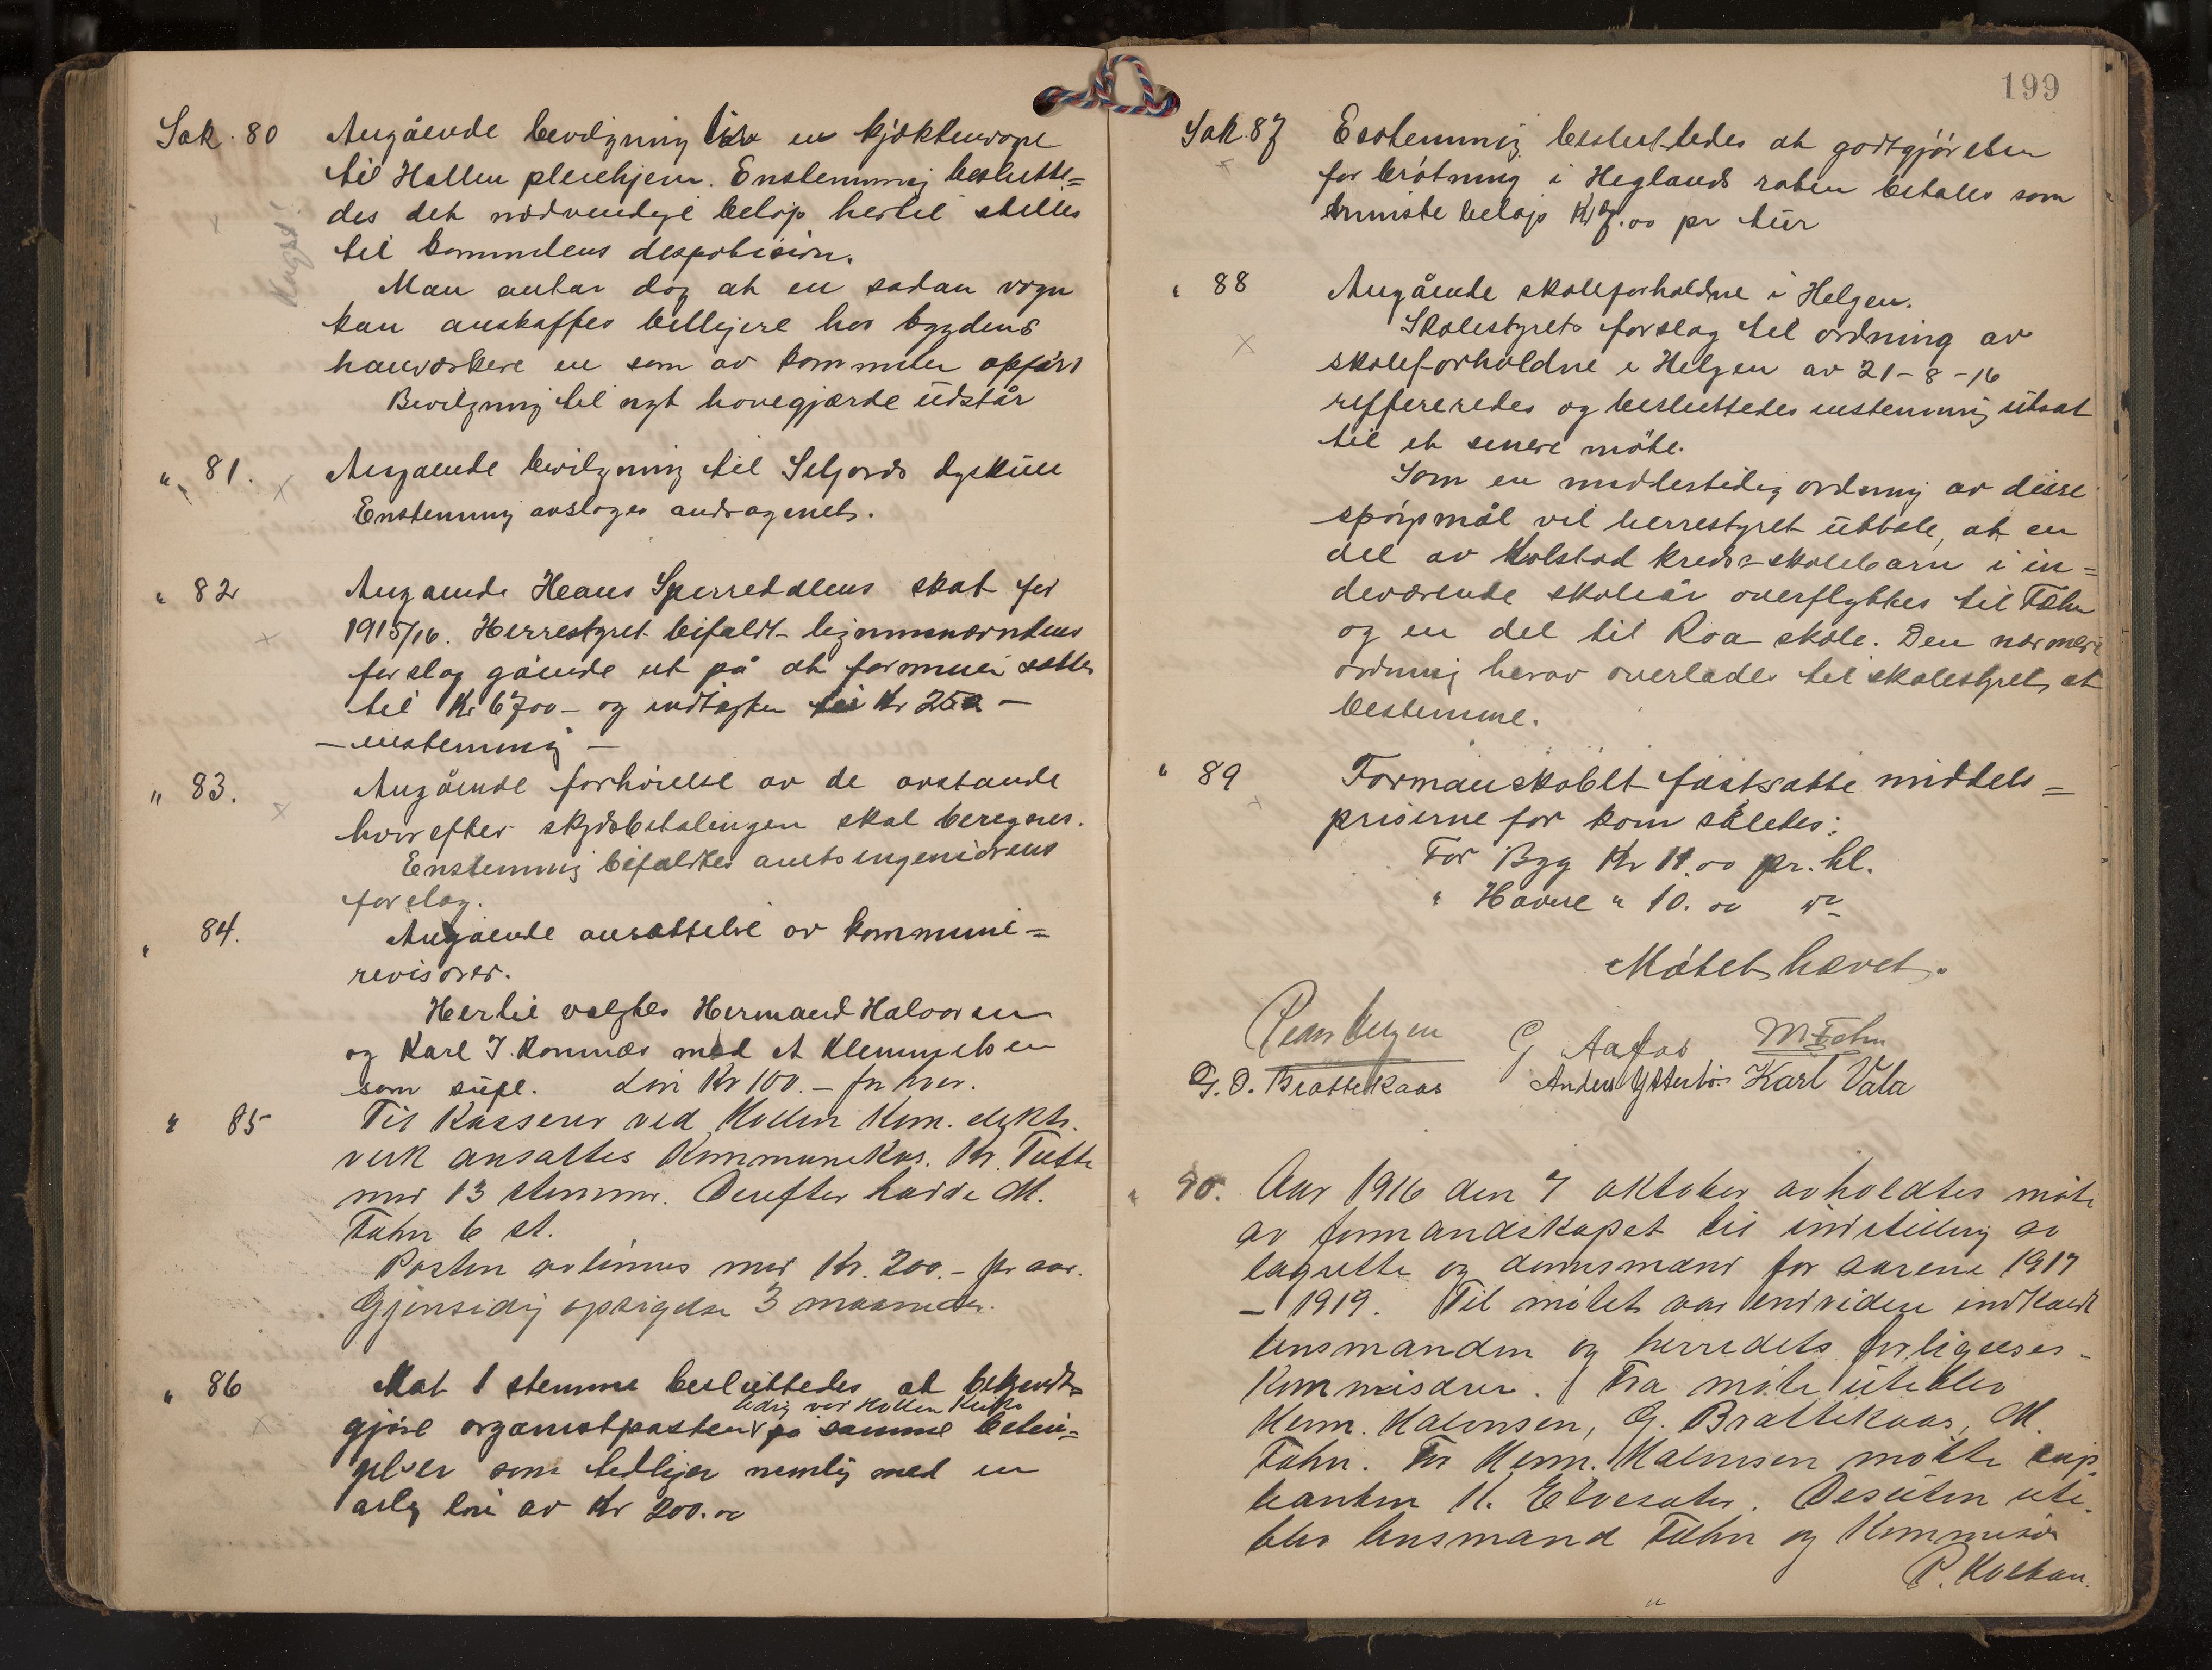 Sak. 80 Angående bevilgning til en kjøktenvogn
til Hollen pleiehjem. Enstemmig beslutte=
des det nødvendige beløp hertil stilles
til komiteens desposisjon.
Man antar dog at en sådan vogn
kan anskaffes billigere hos bygdens
hanværkere en som av kommiten opført
Bevilgning til nyt havegjærde udstår
" 81. Angående bevilgning til Seljords dyskue
Enstemmig avsloges andragenet.
" 82 Angående Hans Sperredalens skat for
1915/16. Herrestyret bifaldt ligninsnævndens
forslag gående ut på at formuen sættes
til Kr 6700 – og indtægten til Kr 250 –
– enstemmig –
" 83. Angående forhøielse av de avstande
hvorefter skydsbetalingen skal beregnes.
Enstemmig bifaldtes amtsingeniørens
forslag.
" 84. Angående ansættelse av kommune=
revisorer.
Hertil valgtes Hermand Halvorsen
og Karl J. Romnæs med A Klemmetsen
som supl. Løn Kr 100.– for hver.
" 85 Til Kasserer ved Hollen Kom. elektr.
verk ansattes Kommunekas. Kr. Tufte
med 13 stemmer. Derefter hadde M.
Fæhn 6 st.
Posten avlønnes med Kr. 200.– pr aar.
Gjensidig opsigelse 3 maaneder.
" 86 Mot 1 stemme besluttedes at bekjendt=
ledig ved Hollen Kirke
gjøre organistposten på samme betin=
gelser som tidligere nemlig med en
årlig løn av Kr 200.00
199
Sak. 87 Enstemmig besluttedes at godtgjørelsen
for brøtning i Heglands roten betales som
mindste beløp Kr 7.00 pr tur
" 88 Angående skoleforholdne i Helgen.
Skolestyrets forslag til ordning av
skoleforholdne i Helgen av 21-8-16
reffereredes og besluttedes enstemmig utsat
til et senere møte.
Som en midlertidig ordning av disse
spørpmål vil herrestyret uttale, at en
del av Kolstad kreds-skolebarn i in=
deværende skoleår overflyttes til Fæhn
og en del til Roa skole. Den nærmere
ordning herav overlades til skolestyret, at
bestemme.
" 89 Formanskabet fastsatte middels=
priserne for korn således:
For Byg Kr 11.00 pr. hl.
" Havre " 10.00 do
Møtet hævet.
G Aafos M Fæhn
G. O. Brattekaas Anders Ytterbø Karl Vala
" 90. Aar 1916 den 7 oktober avholdtes møte
av formandskapet til indstilling av
lagrette og domsmænd for aarene 1917
– 1919. Til møtet var endvidere indkaldt
lensmanden og herredets forligelses-
kommisærer. Fra møte uteblev
Herm. Halvorsen, G. Brattekaas, M.
Fæhn. For Herm. Halvorsen møtte sup
leanten K. Elvesæter. Desuten ute-
blev lensmand Fæhn og Kommisær
P. Kolstan.